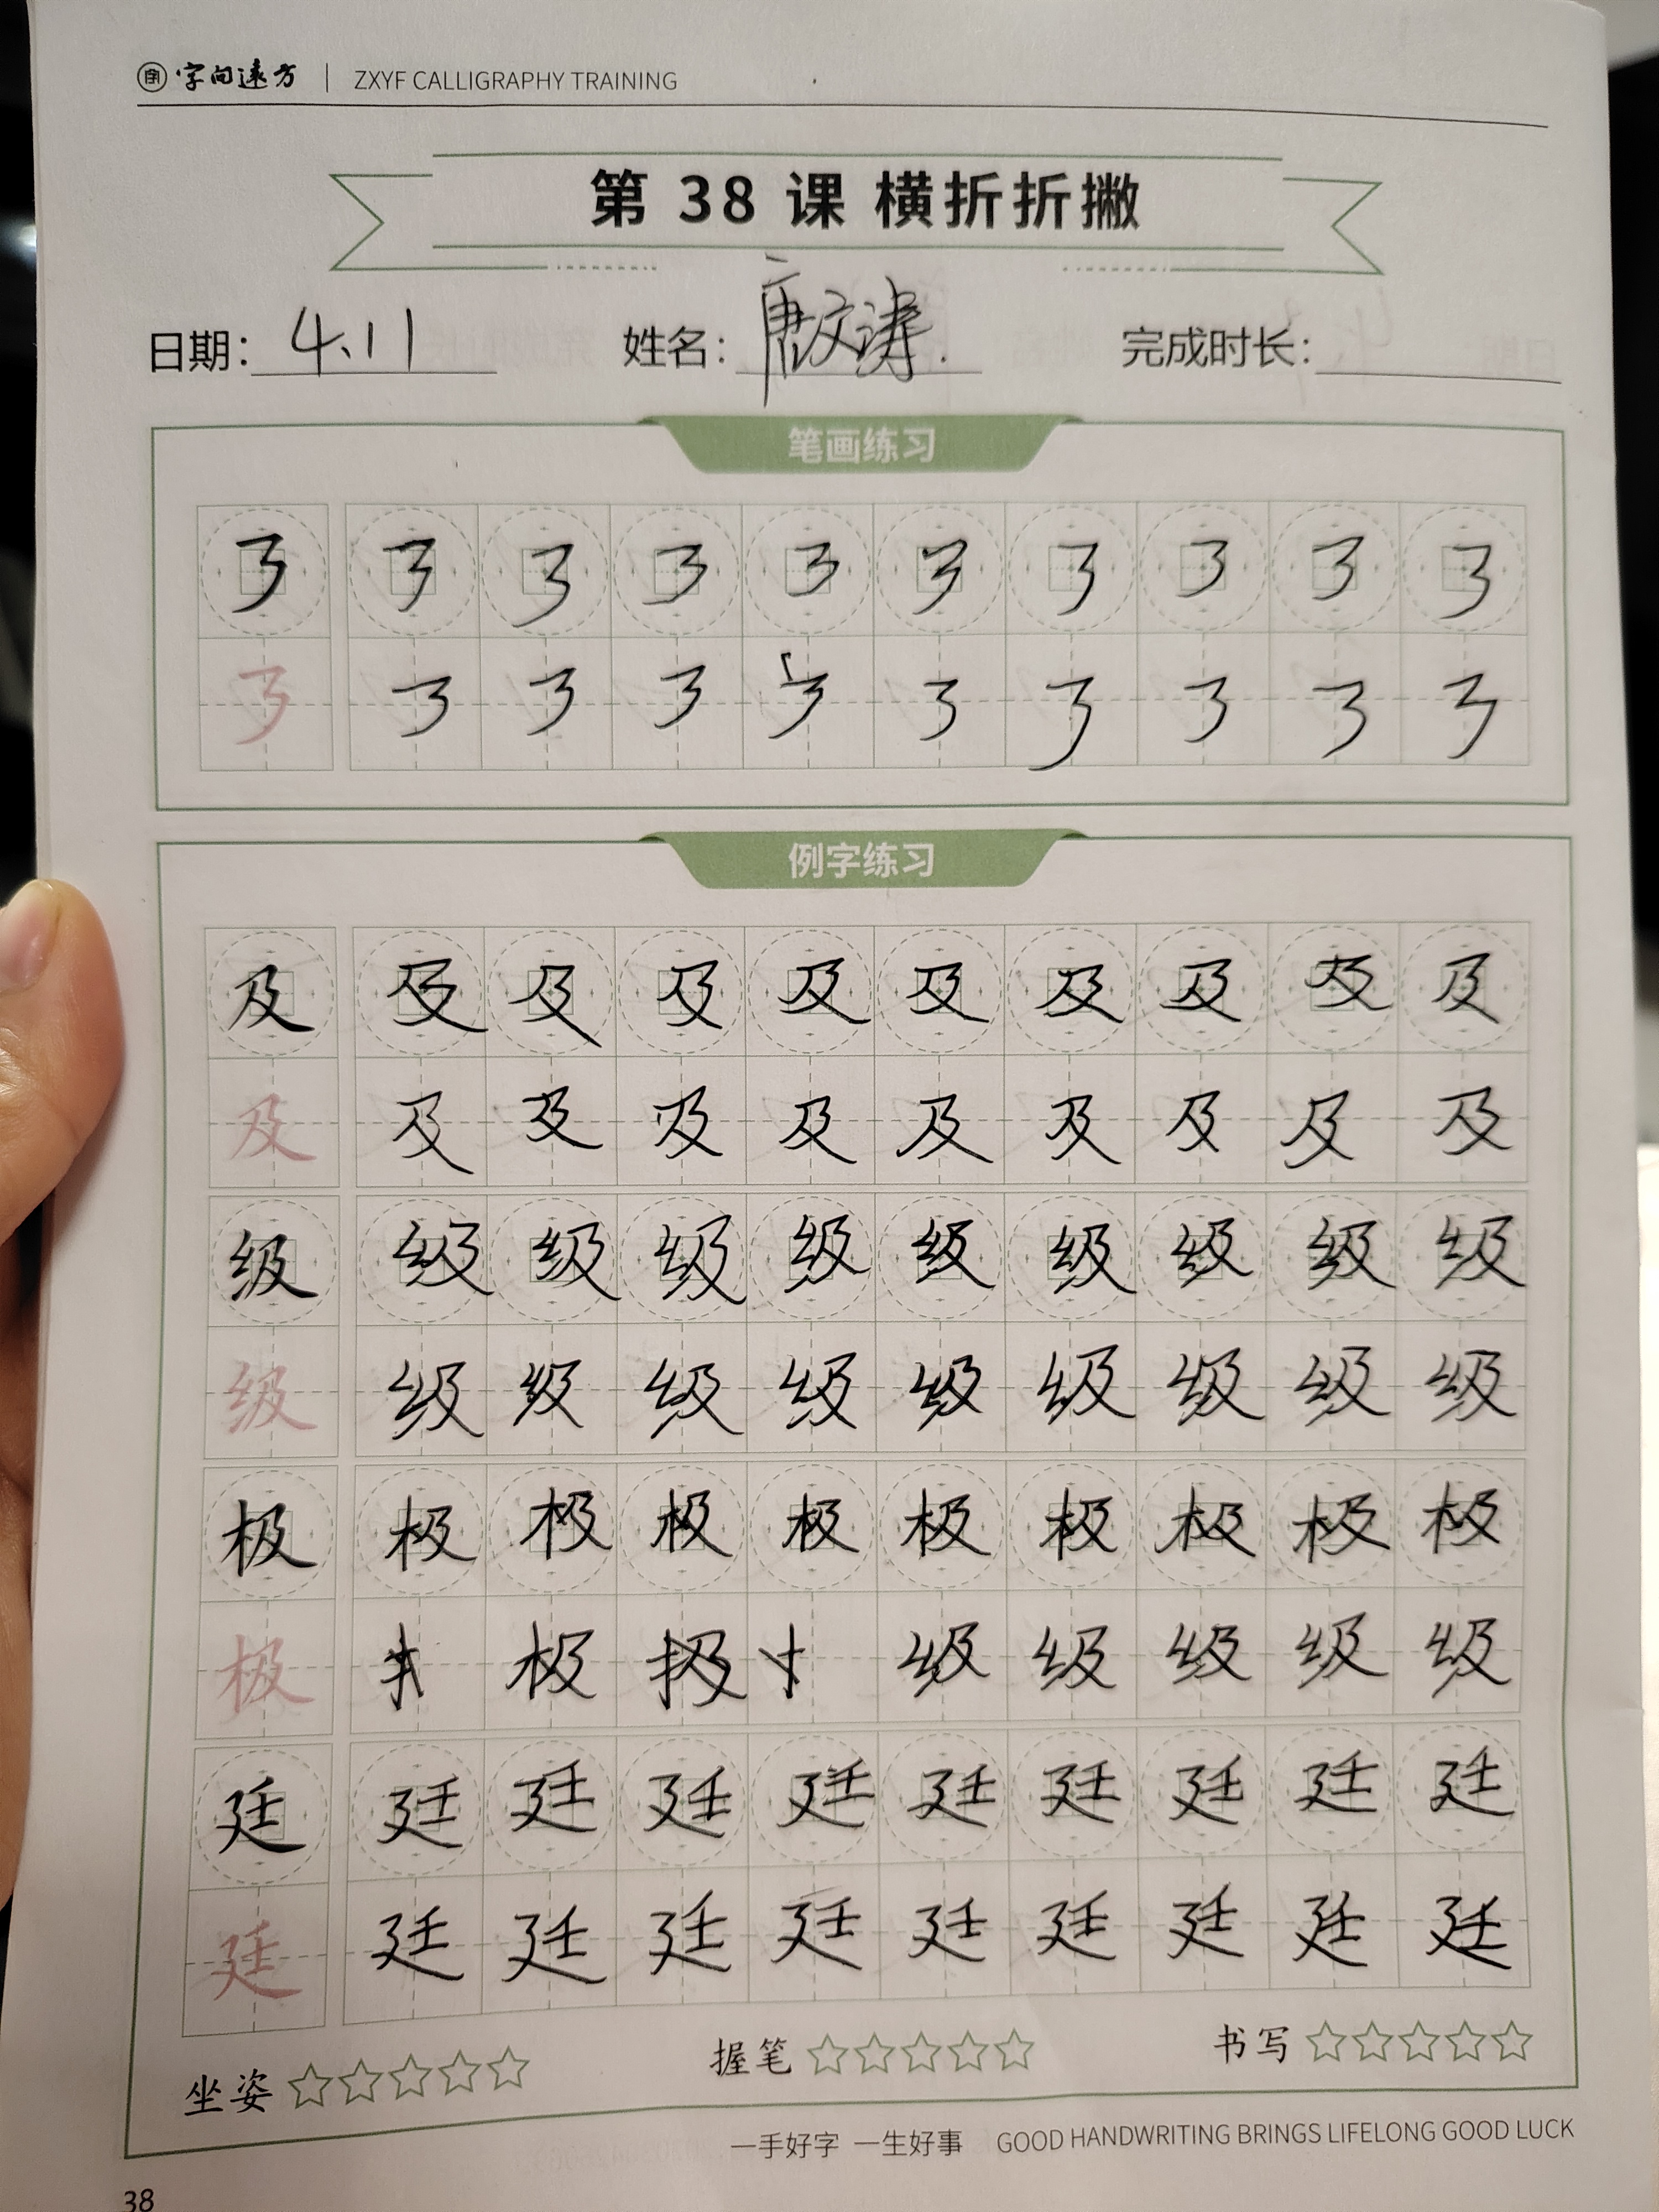 字向远方 | ZXYF CALLIGRAPHY TRAINING
第 38 课 横折折撇
日期: 4.11 姓名: 唐文涛. 完成时长:
笔画练习
例字练习
及 及 及 及 及 及 及 及 及 及
及 及 及 及 及 及 及 及 及 及
级 级 级 级 级 级 级 级 级 级
级 级 级 级 级 级 级 级 级 级
极 极 极 极 极 极 极 极 极 极
极 极 扱 级 级 级 级 级
廷 廷 廷 廷 廷 廷 廷 廷 廷 廷
廷 廷 廷 廷 廷 廷 廷 廷 廷 廷
坐姿 ☆☆☆☆☆ 握笔 ☆☆☆☆☆ 书写 ☆☆☆☆☆
一手好字 一生好事 GOOD HANDWRITING BRINGS LIFELONG GOOD LUCK
38